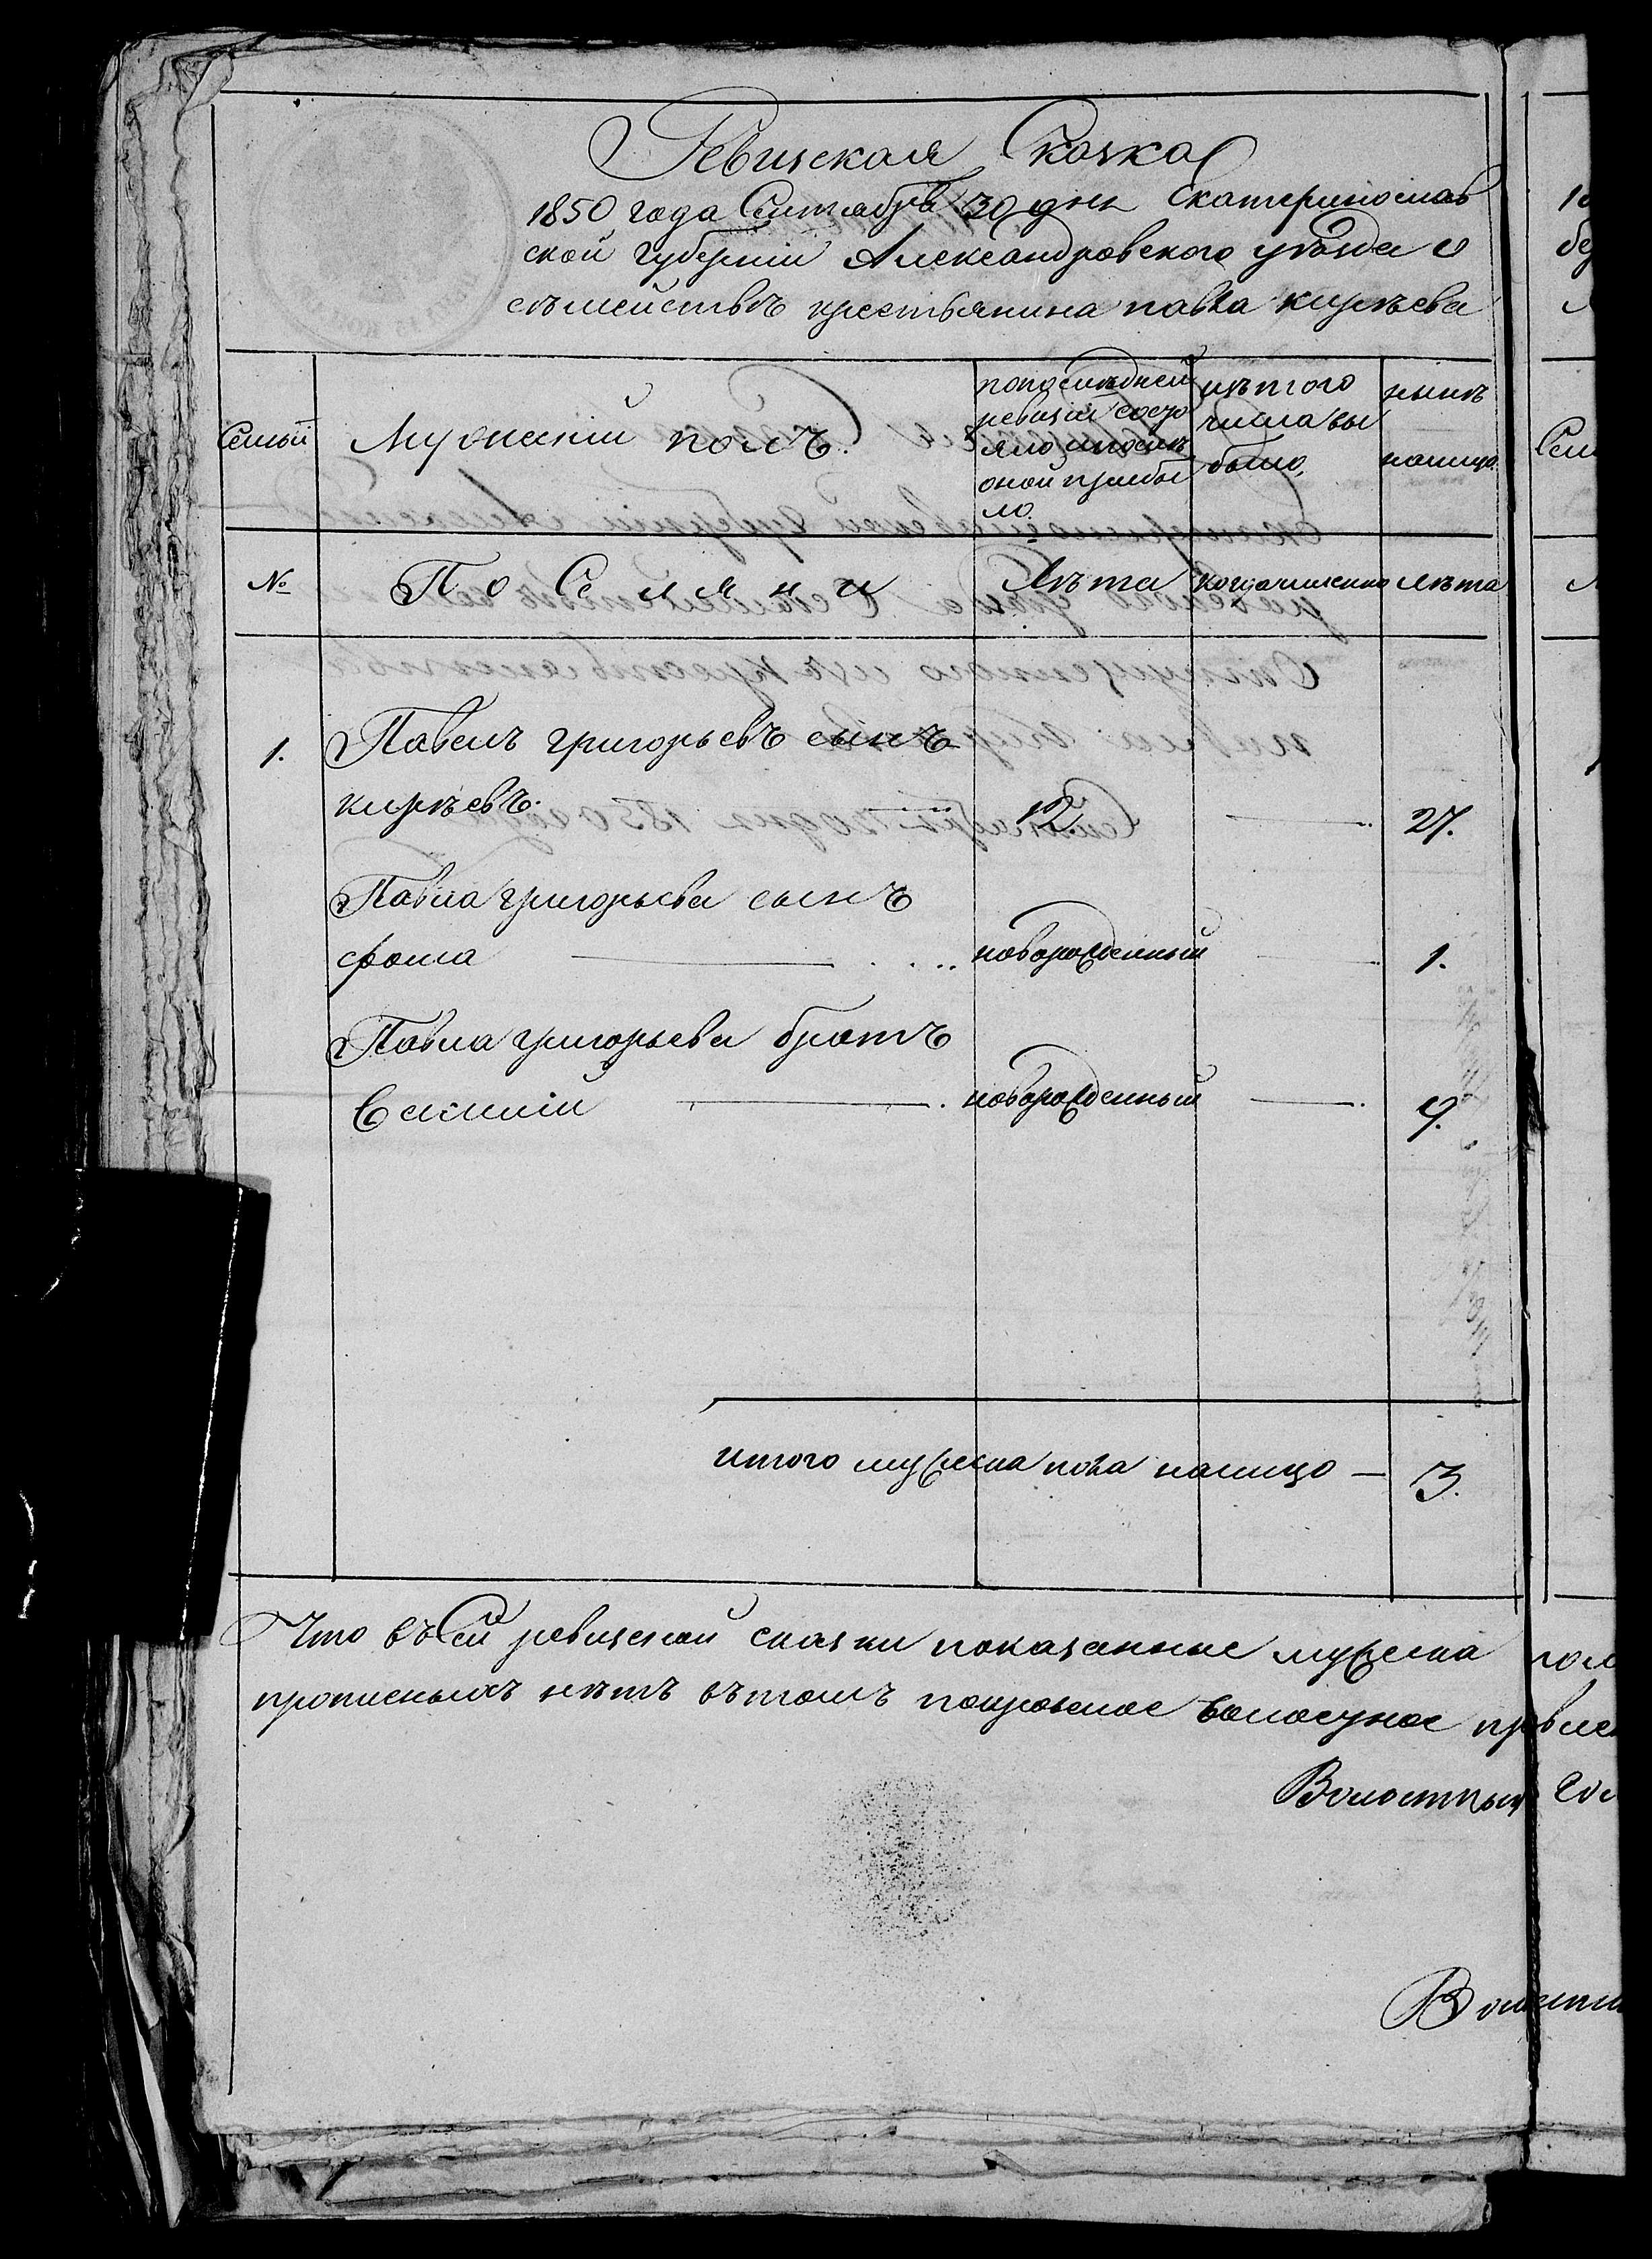 Ревизская Сказка
1850 года Сентября 30 дня Екатеринослав
ской губернии Александровского уезда о
съмействѣ крестьянина павла кирѣева
Семьи
Мужеский полъ.
попоследней
ревизии состо
яло ипослѣ
оной прибы
ло.
изъ того
числа вы
было,
нынѣ
налицо.
№
Поселяни
Лѣта
когдаименно
лѣта
1.
Павелъ григорьевъ сынъ
кирѣевъ.
12.
27.
Павла григорьева сынъ
фома
новорожденный
1.
Павла григорьева братъ
новорожденный
9.
итого мужеска пола налицо — 3.
Что въ сей ревизской сказки показанные мужеска
прописныхъ нѣтъ вътомъ покровское волосное
Волостный